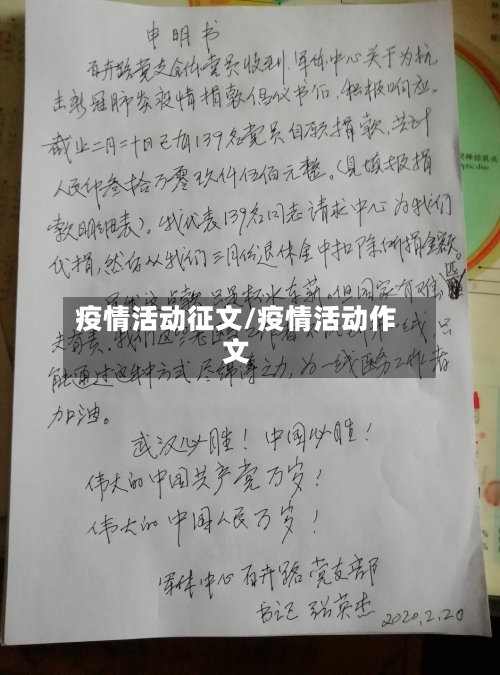 申明书
百卉路党支全体党员收到军休中心关于为抗
击新冠肺炎疫情捐款倡议书后，积极响应。
截止二月二十日已有139名党员自愿捐款，共计
人民币叁拾万零玖仟伍佰元整。（见媒报捐
款明细表）。我代表139名同志请求中心为我们
代捐，然后从我们三月份退休金中扣除所捐金额。
国家有难匹
夫有责。我们这些老
能通过这种方式尽绵薄之力，为一线医务工作者
加油。
疫情活动征文/疫情活动作
文
武汉必胜！中国必胜！
伟大的中国共产党万岁！
伟大的中国人民万岁！
军休中心百卉路党支部
书记 张英杰 2020.2.20